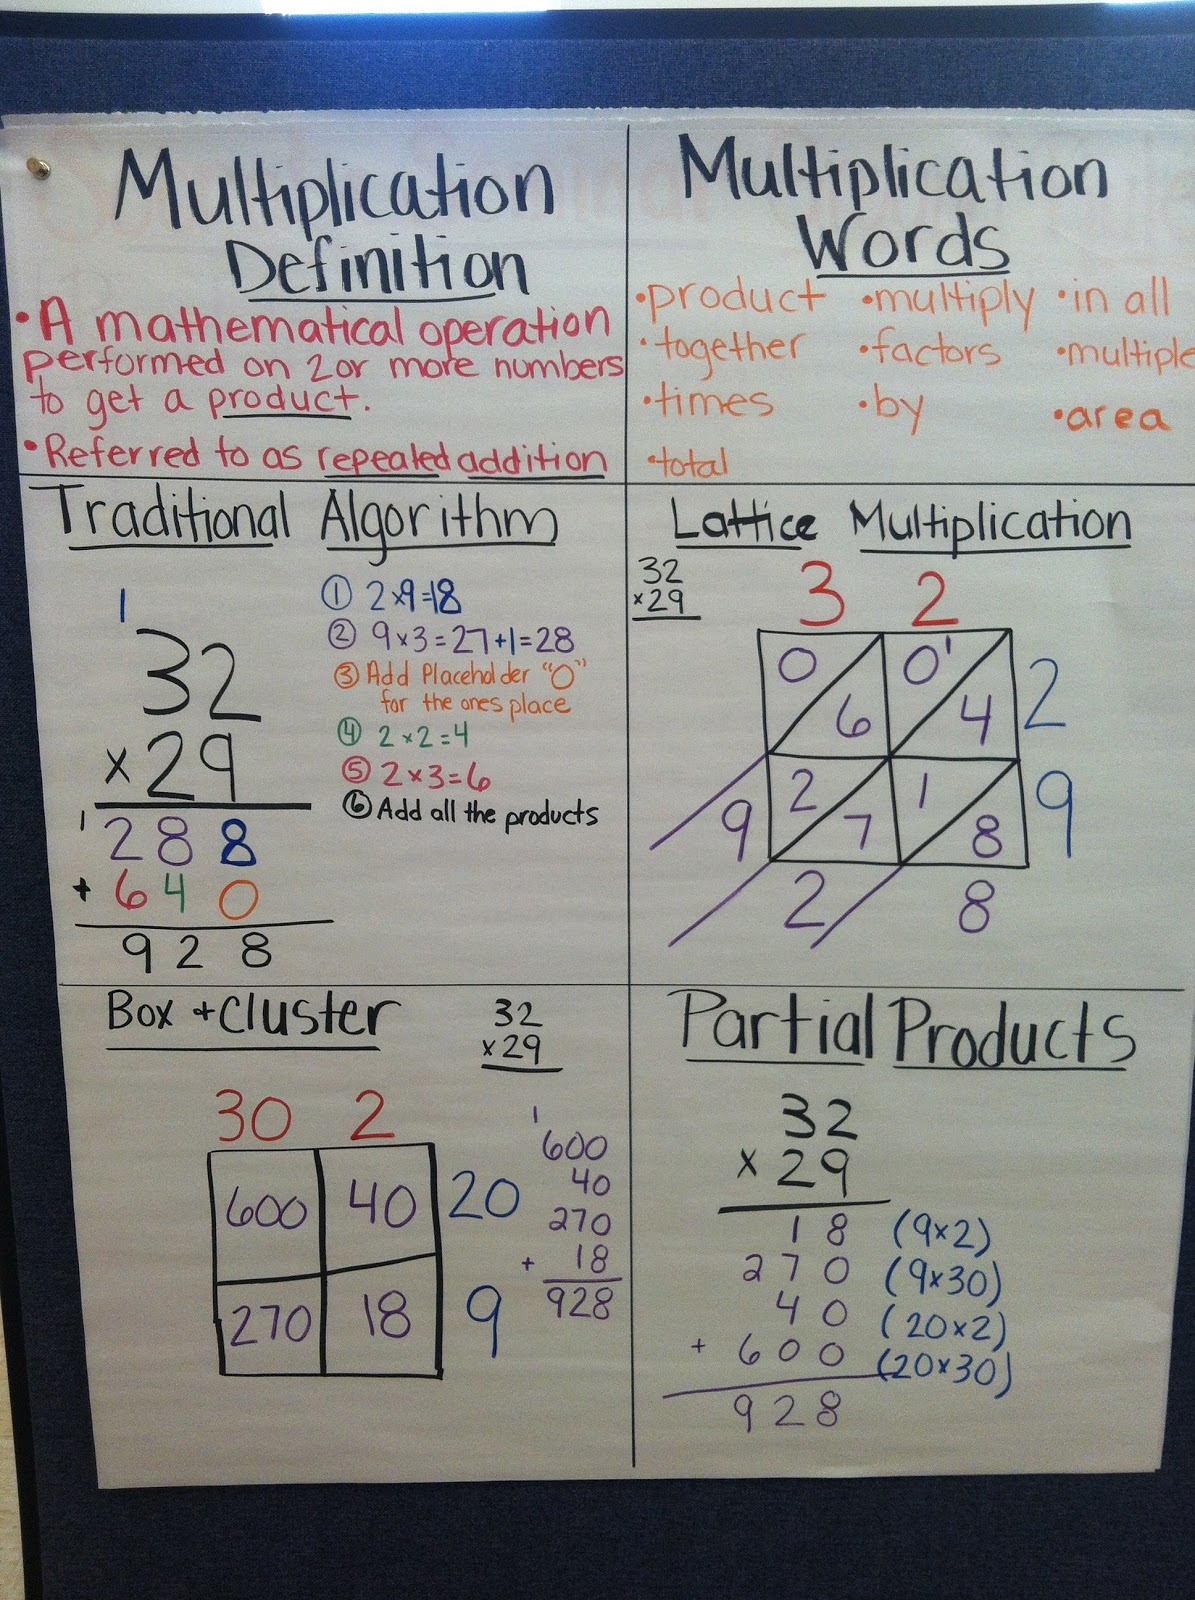 Multiplication
Definition
• A mathematical operation
performed on 2 or more numbers
to get a product.
• Referred to as repeated addition
Multiplication
Words
• product • multiply • in all
• together • factors • multiple
• times • by • area
• total
Traditional Algorithm
1
32
×29
1
288
+ 640
928
① 2×9=18
② 9×3=27+1=28
③ Add Placeholder "0"
for the ones place
④ 2×2=4
⑤ 2×3=6
⑥ Add all the products
Lattice Multiplication
32
×29
3 2
0 0 1
6 4 2
2 1
9 7 8 9
2 8
Box + Cluster
32
×29
30 2
600 40 20
270 18 9
1
600
40
270
+ 18
928
Partial Products
32
× 29
18 (9×2)
270 (9×30)
40 (20×2)
+ 600 (20×30)
928